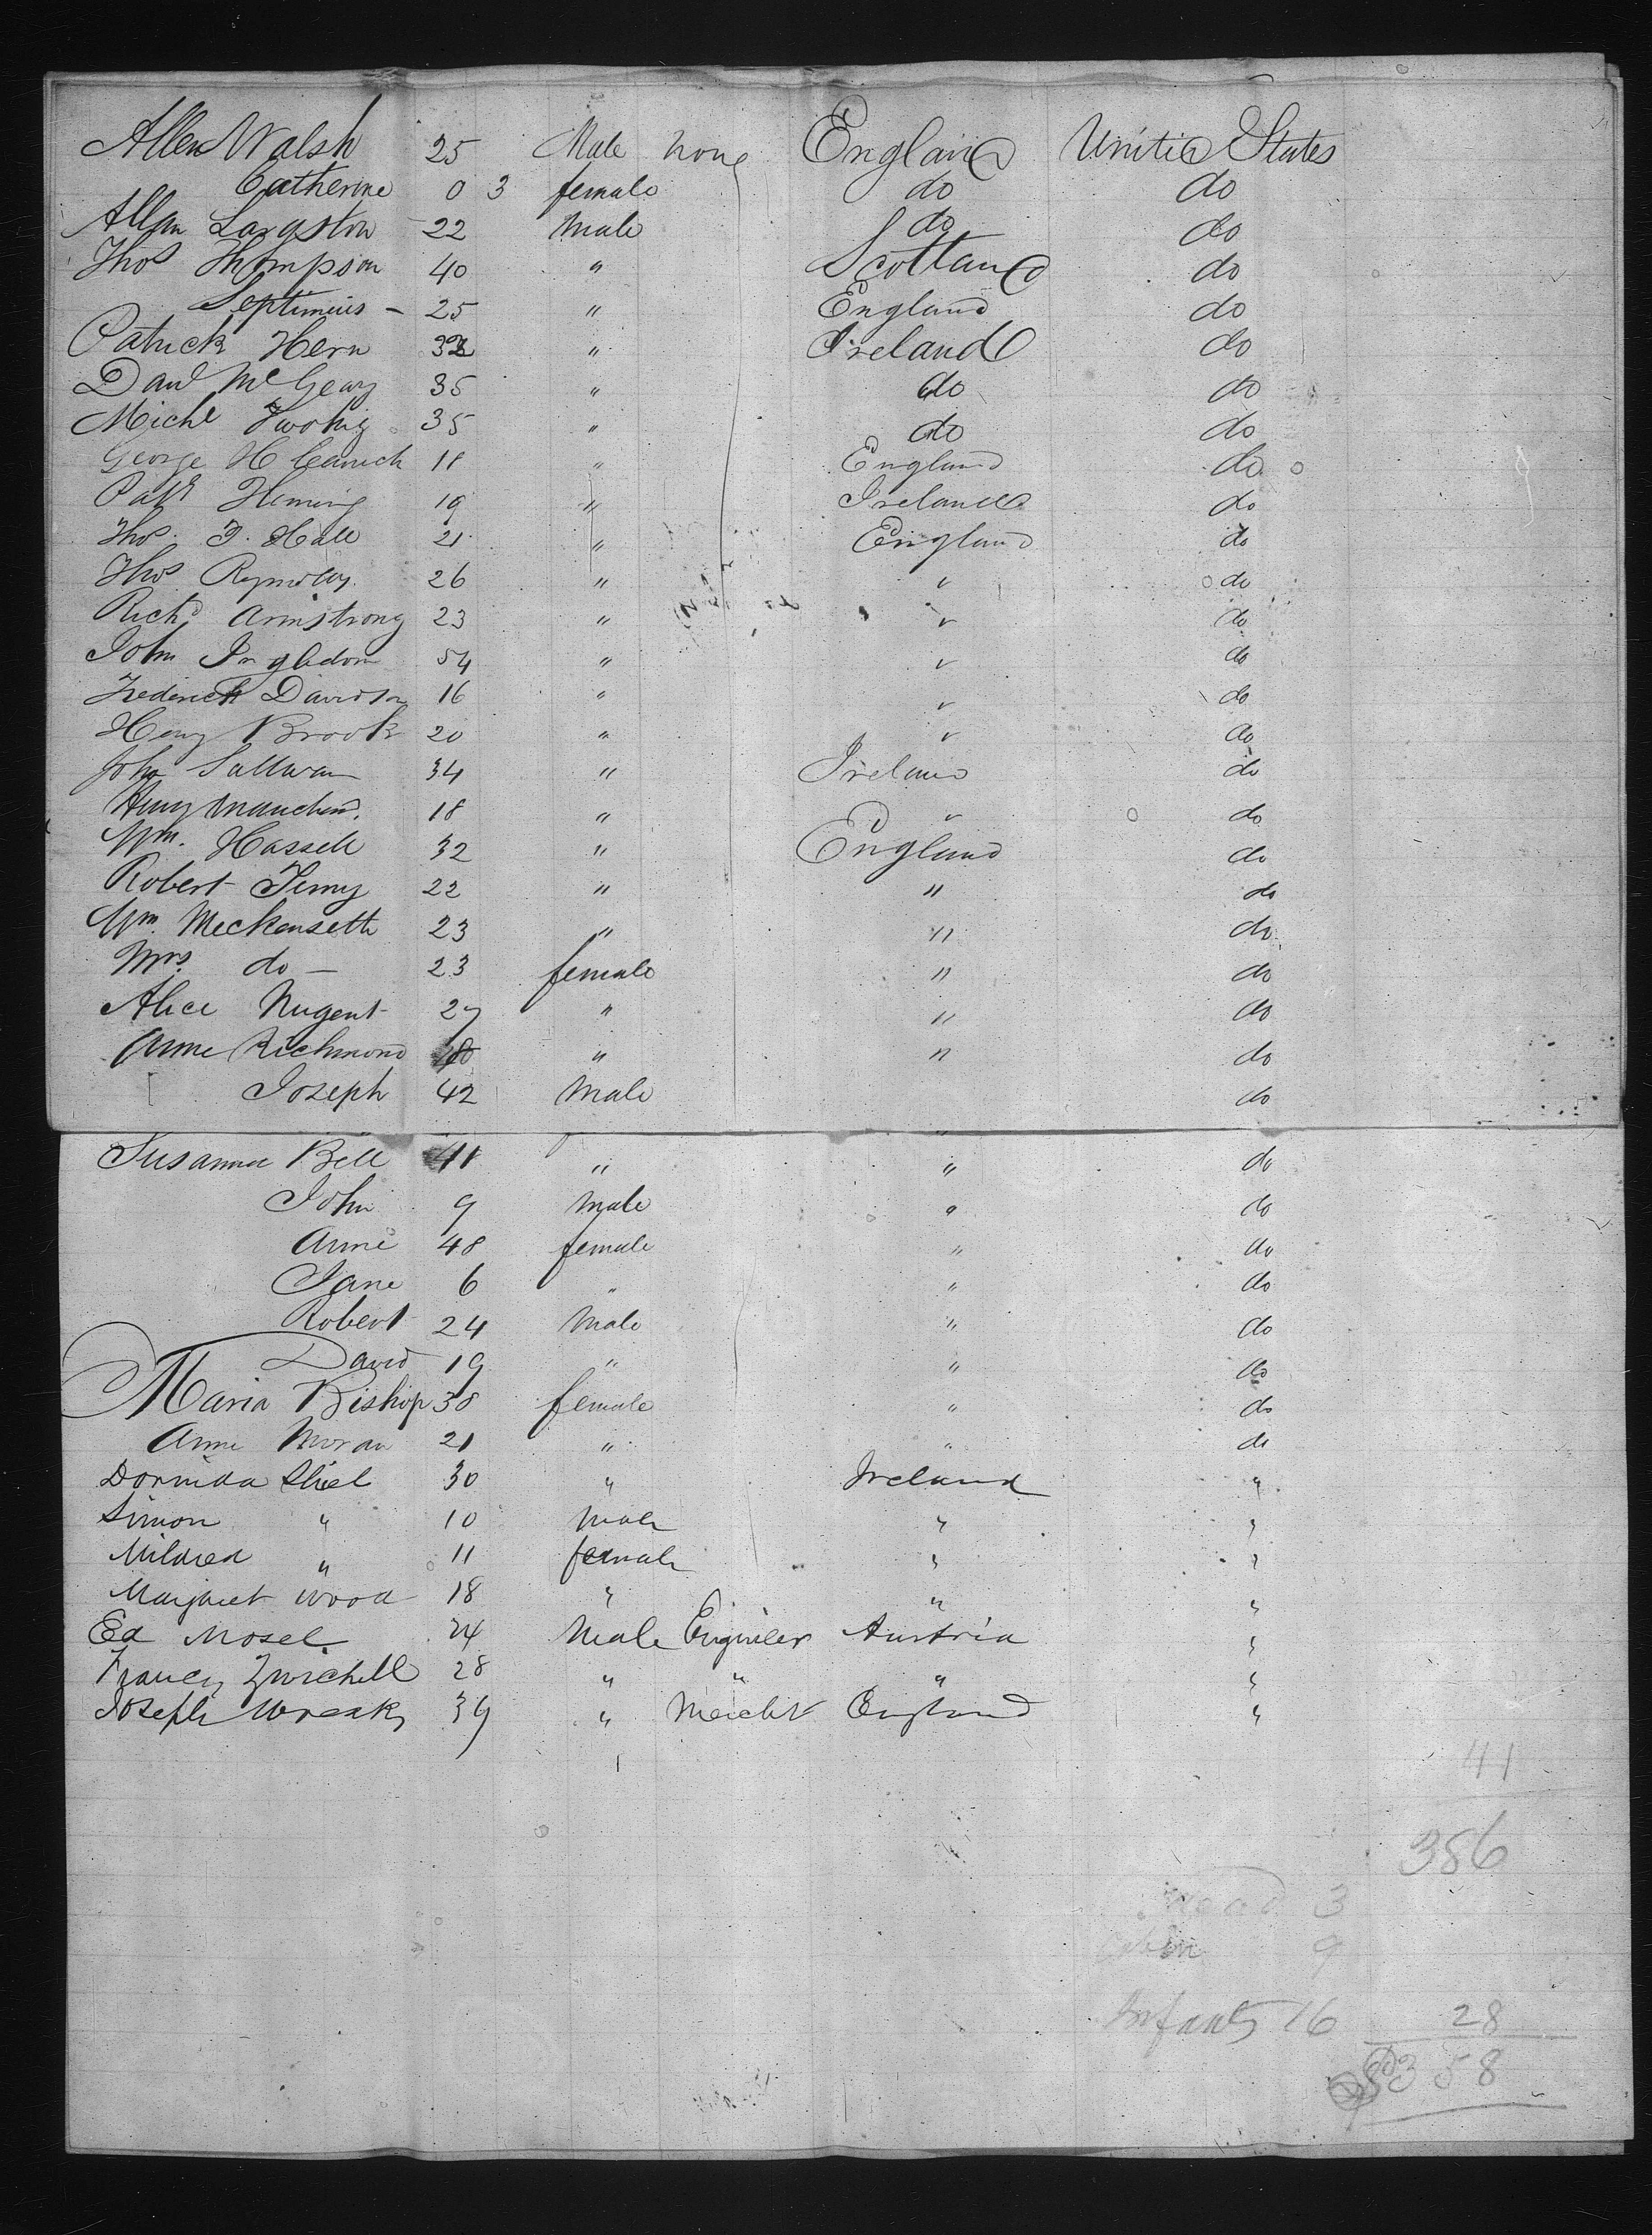 Allen Walsh 25 Male None England United States
Catherine 0 3 female do do
Allan Langston - 22 Male do do
Thos Thompson 40 " Scotland do
Septimius - 25 " England do
Patrick Hern 32 " Ireland do
Danl McGeary 35 " do do
Michl Twohig 35 " do do
George H 18 " England do
Patk Fleming 19 " Ireland do
Thos. F. Hall 21 " England do
Thos Reynolds 26 " " do
Richd Armstrong 23 " " do
John Ingledon 54 " " do
Frederick Davidson 16 " " do
Heny Brook 20 " " do
John Sullivan 34 " Ireland do
Henry 18 " " do
Wm. Hassell 32 " England do
Robert 22 " " do
Wm. Meckenseth 23 " " do
Mrs. do - 23 female " do
Alice Nugent 27 " " do
Anne Richmond " " do
Joseph 42 Male do
Susanna Bell 41 " " do
John 9 Male " do
Anne 48 female " do
Jane 6 " " do
Robert 24 Male " do
David 19 " " do
Maria Bishop 38 female " do
Anne Moran 21 " " do
Dorinda Shiel 30 " Ireland "
Simon " 10 Male " "
Mildred " 11 female " "
Margaret Wood 18 " " "
Ed Mosel 24 Male Engineer Austria "
Francis Zwichell 28 " " " "
Joseph Wreaks 39 " Mercht England "
41
386
Dead 3
Cabin 9
Infants 16 28
358